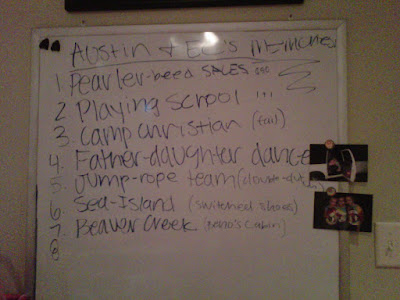 Austin + Ec's Memories
1. Pearler-beed SALES
2 Playing School ...
3. Camp Christian (fall)
4. Father-daughter dance
5. Jump-rope team
6. Sea-Island (switched places)
7. Beaver Creek
8